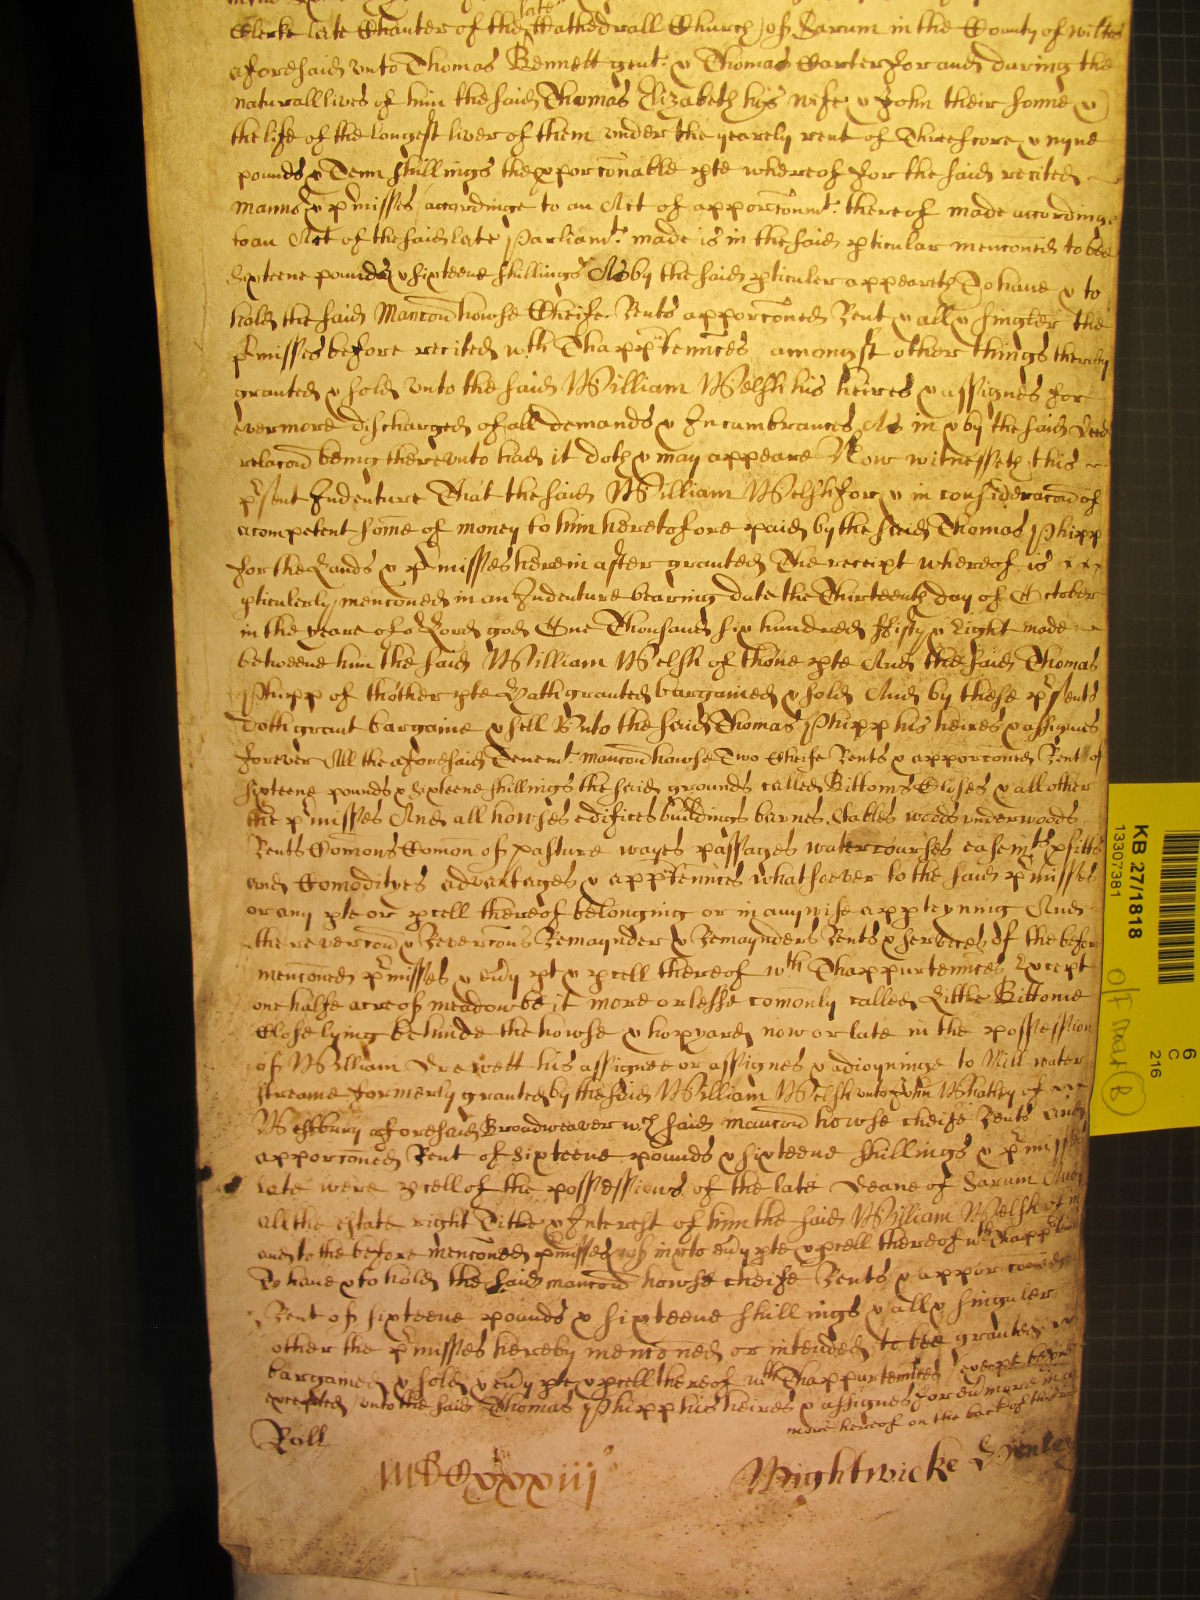 late
Clerke late Chanter of the Cathedrall Church of Sarum in the County of Wiltes
aforesaid unto Thomas Bennett gent. & Thomas Carter for and during the
naturall lives of him the said Thomas Elizabeth his wife & John their sonne &
the life of the longest liver of them under the yearely rent of Threescore & nyne
pounds & Tenn shillings the apporconable pte whereof for the said recited
mannor & pmisses accordinge to an Act of apporconmt. thereof made accordinge
to an Act of the said late Parliamt. made is in the said pticular menconed to bee
Sixteene pounds & sixteene shillings As by the said pticuler appeareth To have & to
hold the said Mancon howse Cheife Rents apporconed Rent & all & singler the
pmisses before recited wth Thapptennces amongst other things thereby
granted & sold unto the said William Welsh his heires & assignes for
evermore discharged of all demands & Incumbrances As in & by the said Deed
relacon being thereunto had it doth & may appeare Now witnesseth this
psent Indenture That the said William Welsh for & in consideracon of
a competent some of money to him heretofore paid by the said Thomas Phipp
for the Lands & pmisses herein after granted The receipt whereof is
pticulerly menconed in an Indenture bearing date the Thirteenth day of October
in the yeare of or Lord god One Thousand six hundred Fifty & Eight made
betweene him the said William Welsh of thone pte And the said Thomas
Phipp of thother pte Hath granted bargained & sold And by these psents
Doth grant bargaine & sell Unto the said Thomas Phipp his heires & assignes
forever All the aforesaid Tenemt. mancon howse Two Cheife Rents & apporconed Rent of
sixteene pounds & sixteene shillings the said grounds called Bittoms Closes & all other
the pmisses And all howses edifices buildings barnes stables woods underwoods
Rents Comons Comon of pasture wayes passages watercourses easemts pfitts
and Comodityes advantages & apptennces whatsoever to the said pmisses
or any pte or pcell thereof belonging or in anywise appteyning And
the revercon & Revercons Remaynder & Remaynders Rents & services of the before
menconed pmisses & evy pt & pcell thereof wth Thappurtennces Except
one halfe acre of meadow be it more or lesse comonly called Little Bittome
Close lying behinde the howse & hopyard now or late in the possession
of William Drewett his assignee or assignes & adioyninge to Mill water
streame formerly granted by the said William Welsh unto John Whatley of
Westbury aforesaid Broadweaver wch said mancon howse cheife Rents and
apporconed Rent of Sixteene pounds & sixteene shillings & pmisses
late were pcell of the possessions of the late Deane of Sarum And
all the estate right Title & Interest of him the said William Welsh of in
and to the before menconed pmisses & in & to evy pte & pcell thereof wth Thapptennces
To have & to hold the said mancon howse cheife Rents & apporconed
Rent of sixteene pounds & sixteene shillings & all & singuler
other the pmisses hereby menconed or intended to bee granted
bargained & sold & evy pte & pcell thereof wth Thappurtennces except before
excepted unto the said Thomas Phipp his heires & assignes for evermore
more hereof on the back of this
Roll
Wightwicke
KB 27/1818
13307381
6
C
216